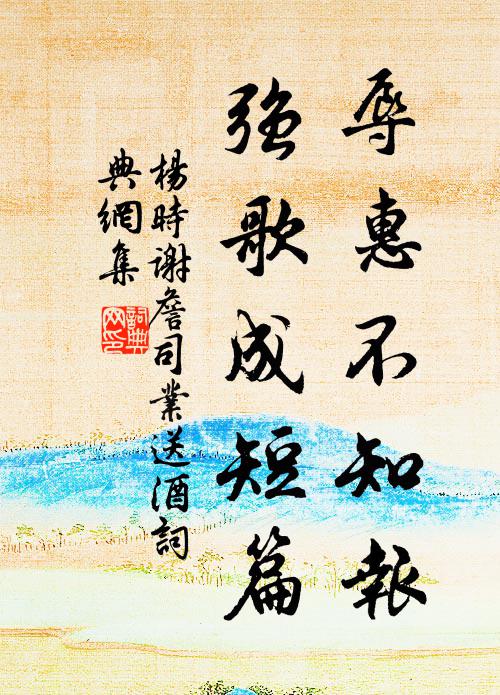 辱惠不知報
強歌成短篇
楊時谢詹司業送酒詞
典網集
詞典
网印